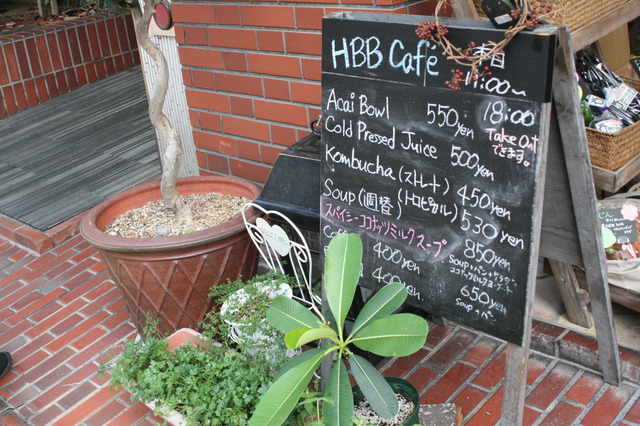 HBB Café 春日
11:00~
18:00
Acai Bowl 550yen
Take Out できます。
Cold Pressed Juice 500yen
Kombucha (ストレート) 450yen
(トロピカル) 530yen
Soup (週替) 850yen
スパイシーココナッツミルクスープ
Soup+パン+サラダ+
ココナッツミルクヨーグルト
400yen
650yen
Soup+パン
400yen